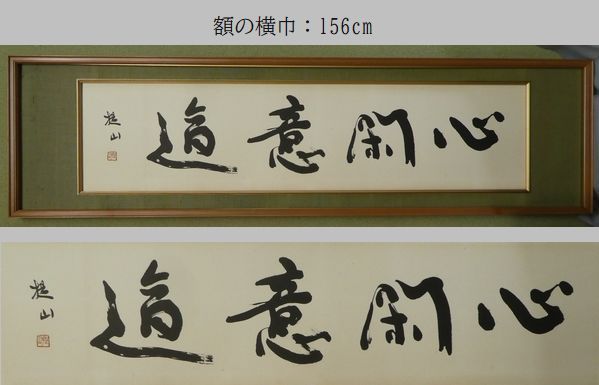 額の横巾：156cm
心閑意適
心閑意適